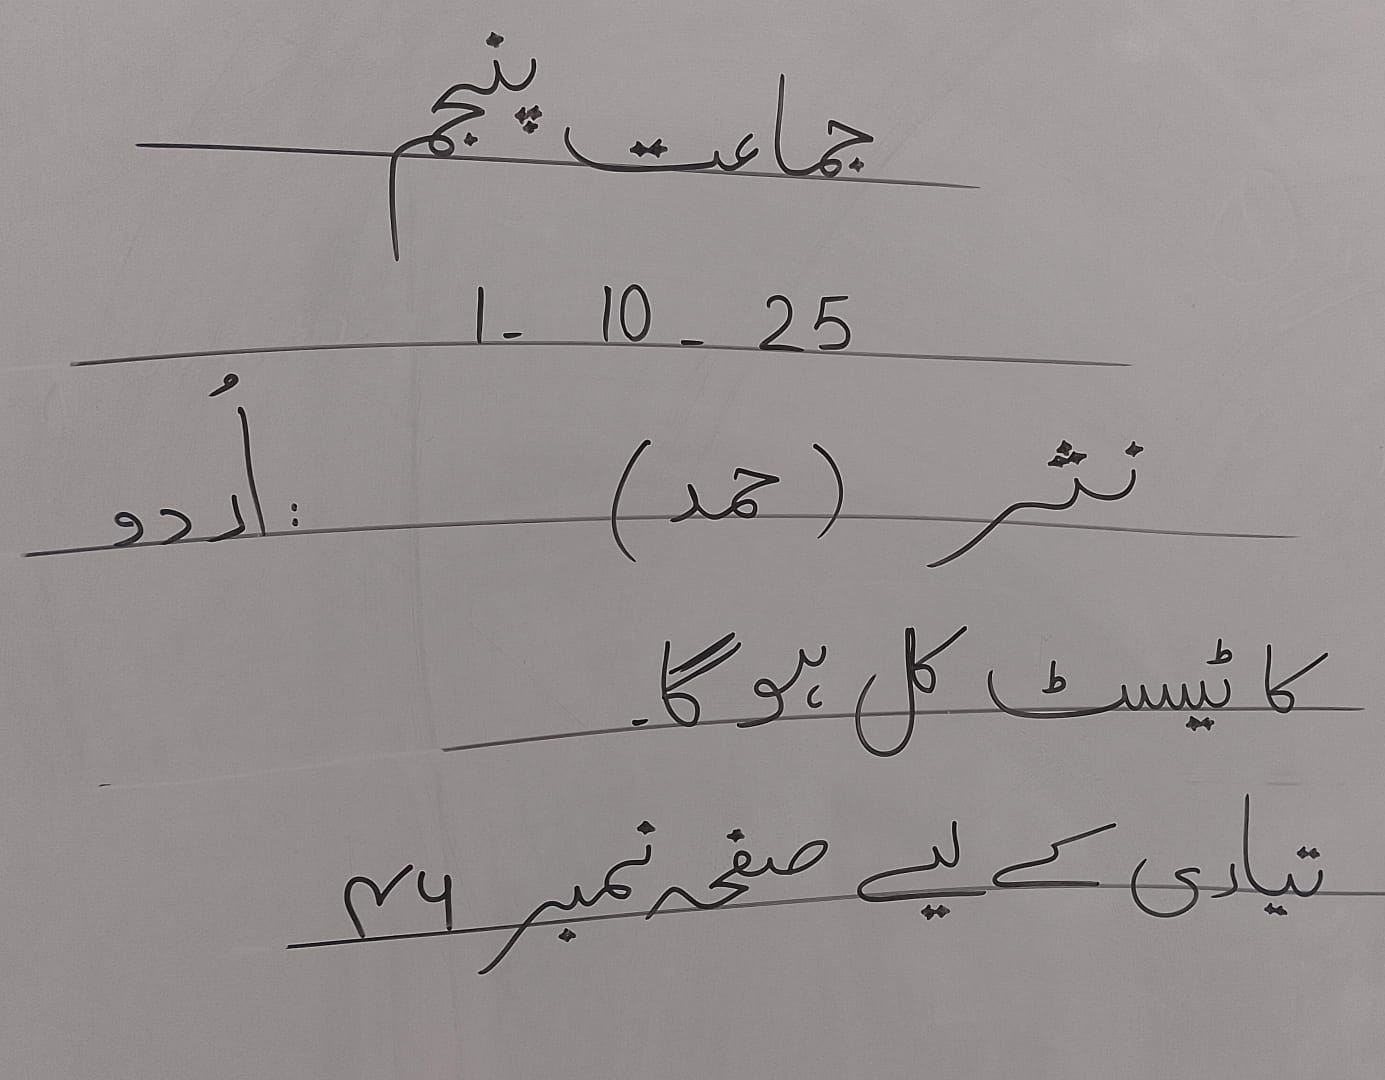 جماعت پنجم
1- 10 - 25
اُردو : نثر (حمد)
کا ٹیسٹ کل ہو گا۔
تیاری کے لیے صفحہ نمبر ۴۶